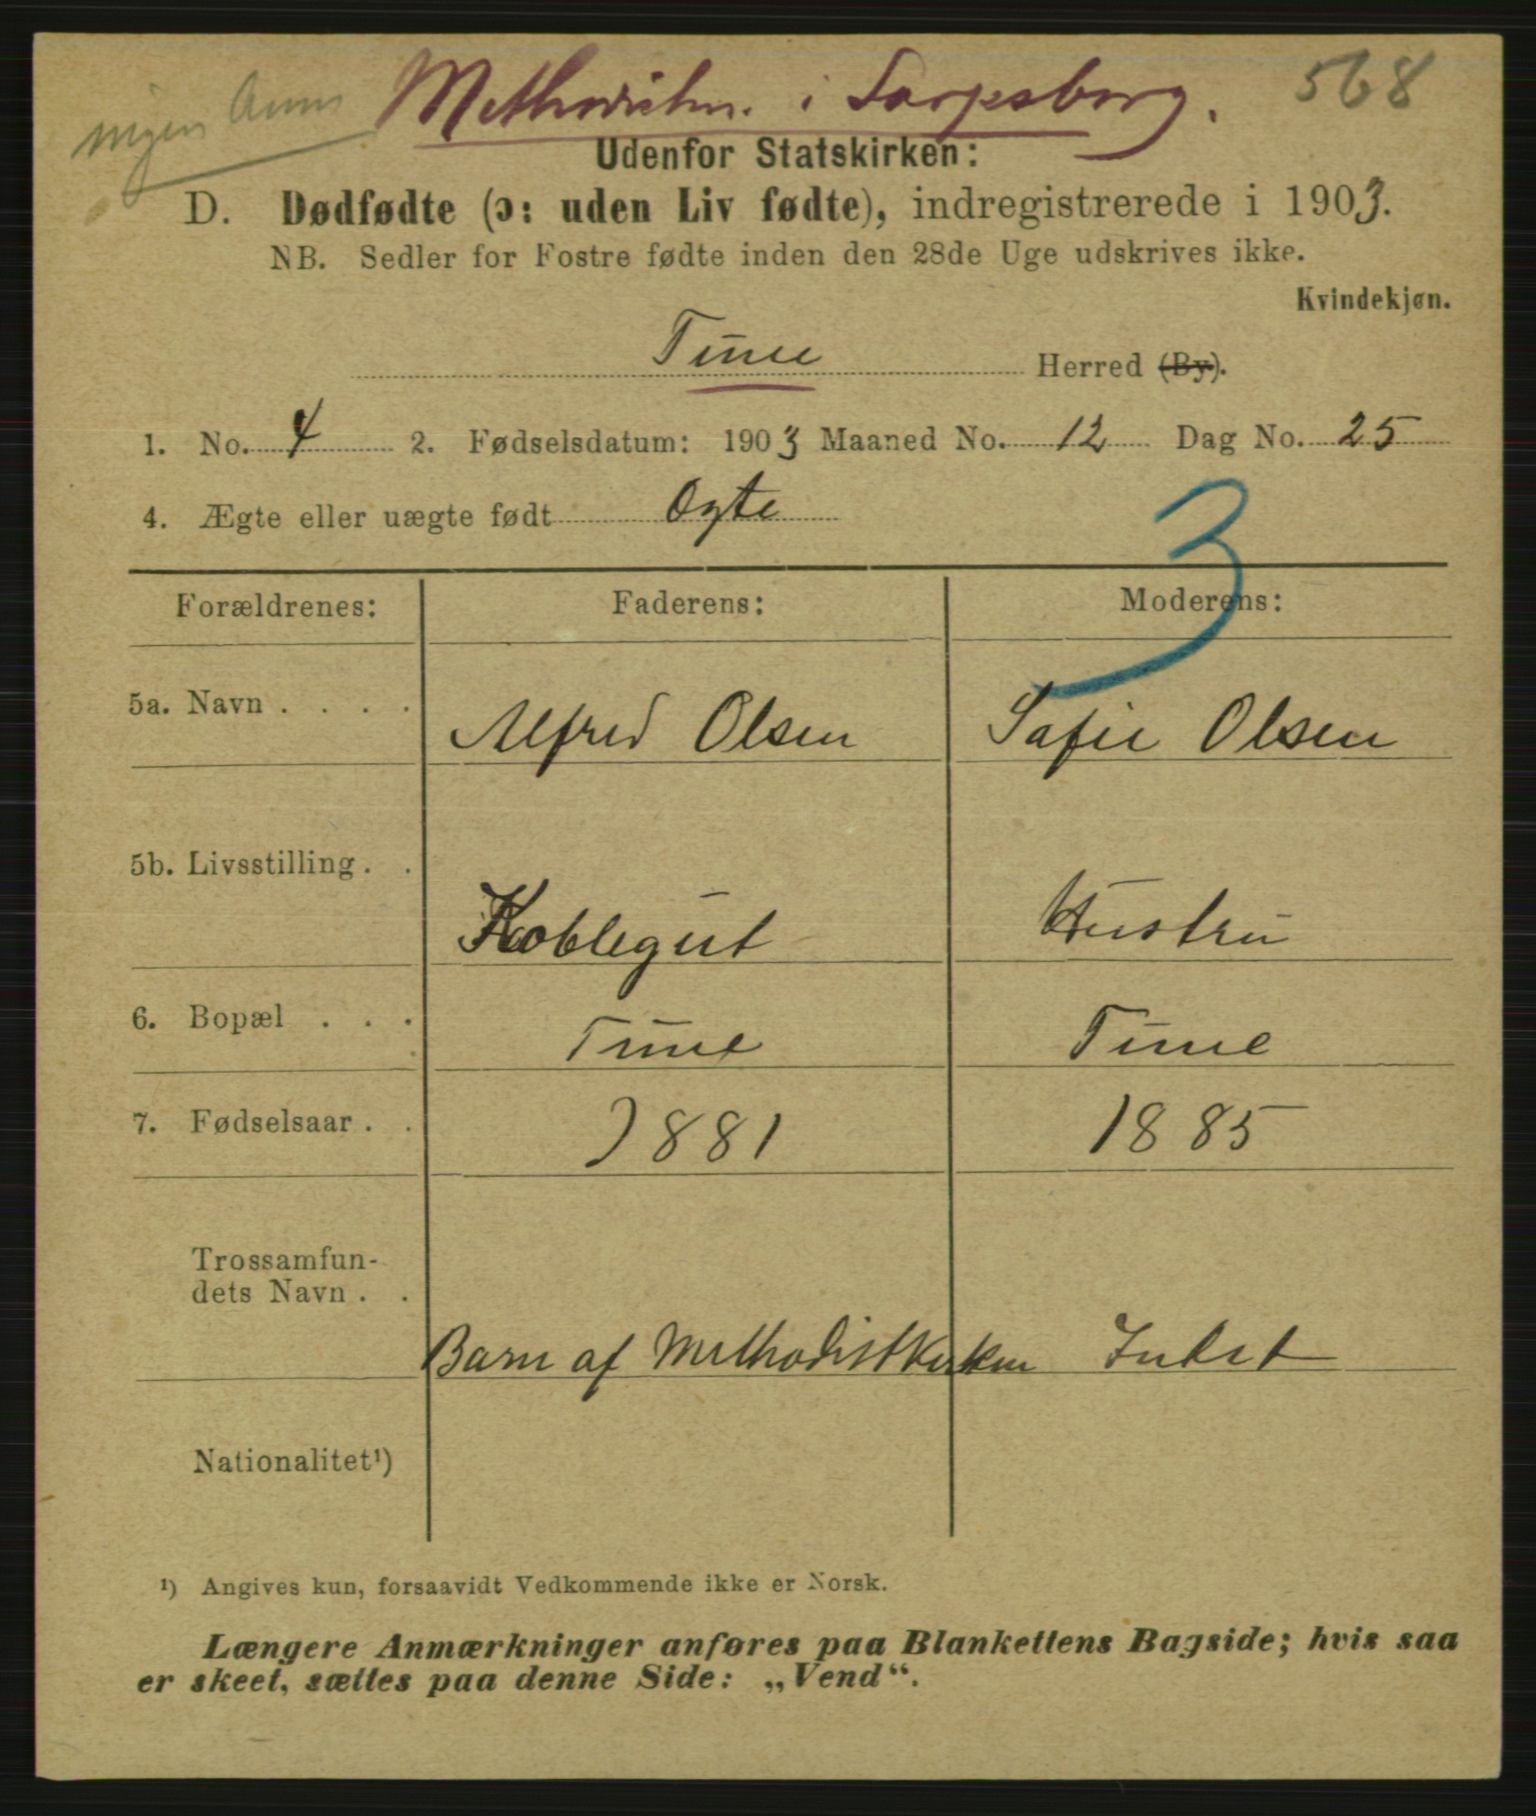 ingen Anm Methodistm. i Sarpsborg. 568
Udenfor Statskirken:
D. Dødfødte (ɔ: uden Liv fødte), indregistrerede i 1903.
NB. Sedler for Fostre fødte inden den 28de Uge udskrives ikke.
Kvindekjøn.
Tune Herred (By).
1. No. 4 2. Fødselsdatum: 1903 Maaned No. 12 Dag No. 25
4. Ægte eller uægte født Ægte
3
Forældrenes: Faderens: Moderens:
5a. Navn . . . . Alfred Olsen Sofie Olsen
5b. Livsstilling . . Koblegut Hustru
6. Bopæl . . . Tune Tune
7. Fødselsaar . . 1881 1885
Trossamfun-
dets Navn . . Barn af Methodistkirken Intet
Nationalitet¹)
¹) Angives kun, forsaavidt Vedkommende ikke er Norsk.
Længere Anmærkninger anføres paa Blankettens Bagside; hvis saa
er skeet, sættes paa denne Side: „Vend“.